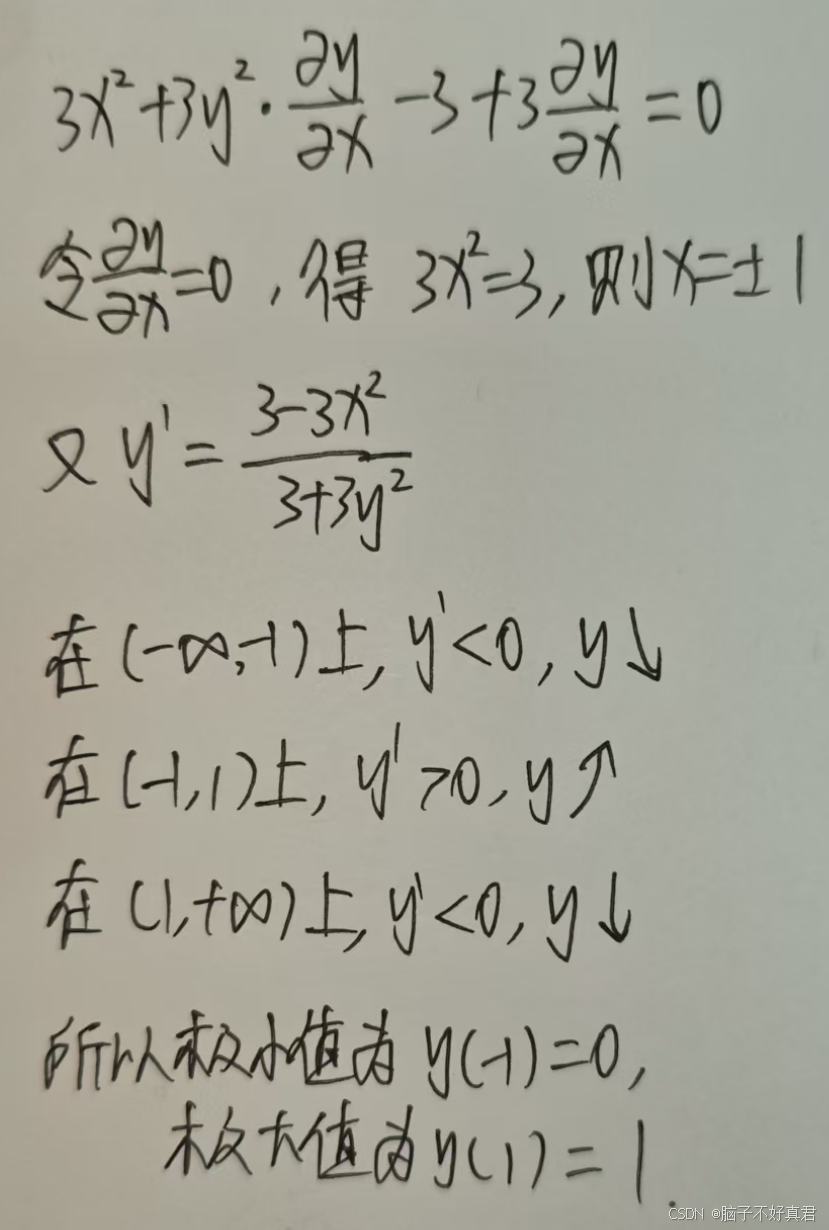 3x²+3y²·∂y/∂x -3+3∂y/∂x=0
令∂y/∂x=0,得 3x²=3,则x=±1
又 y'=(3-3x²)/(3+3y²)
在(-∞,-1)上,y'<0,y↓
在(-1,1)上,y'>0,y↗
在(1,+∞)上,y'<0,y↓
所以极小值为y(-1)=0,
极大值为y(1)=1.
CSDN @脑子不好真君